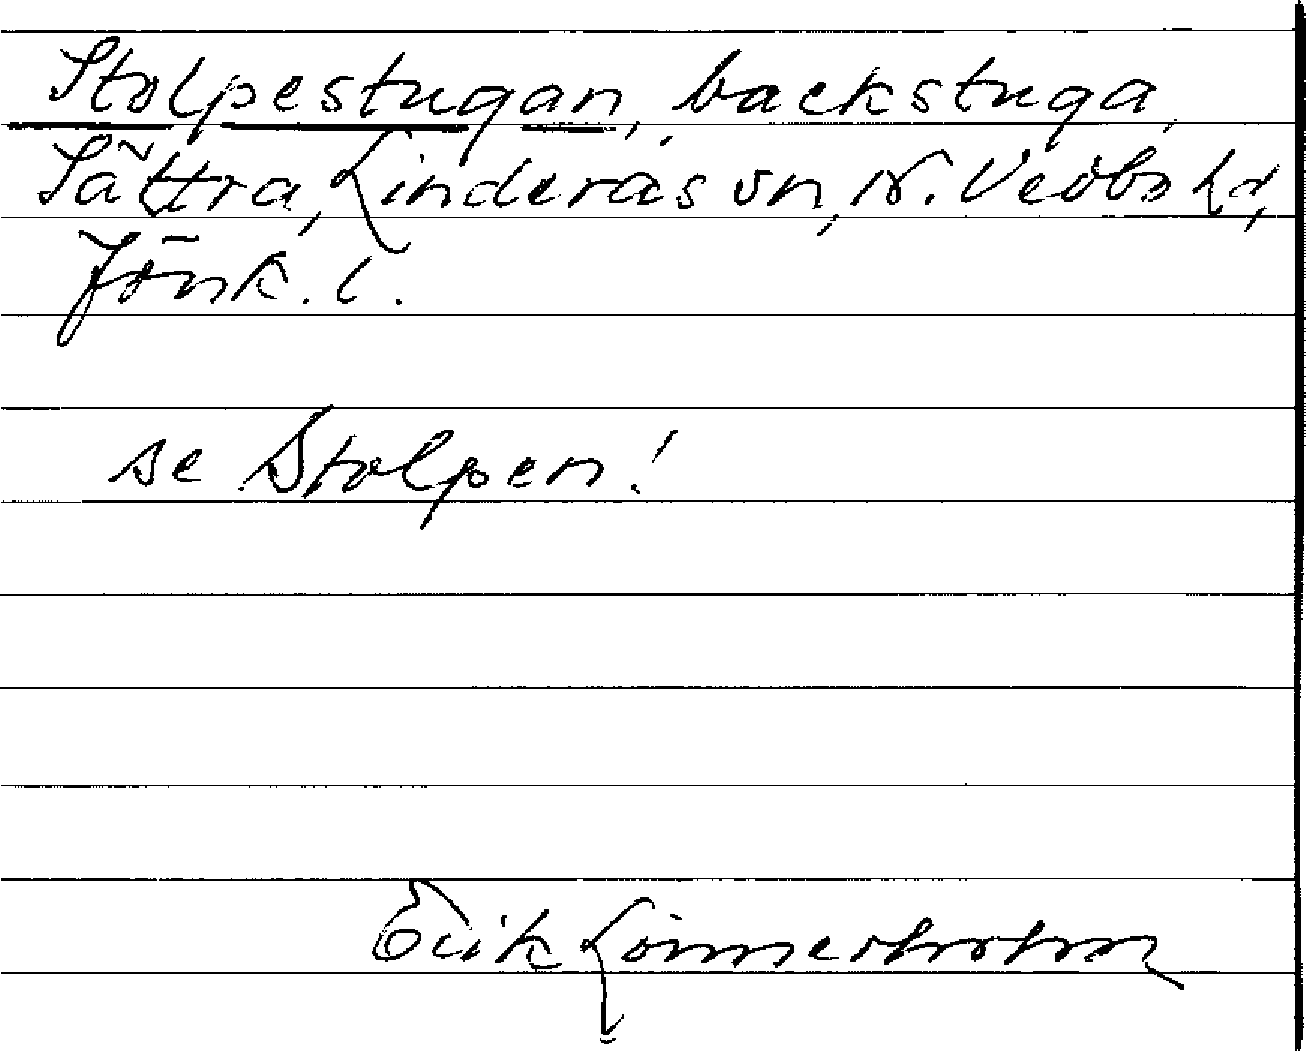 Stolpestugan, backstuga,
Sättra, Linderås sn, N. Vedbo hd,
Jönk. l.
se Stolpen!
Erik Lönnerholm